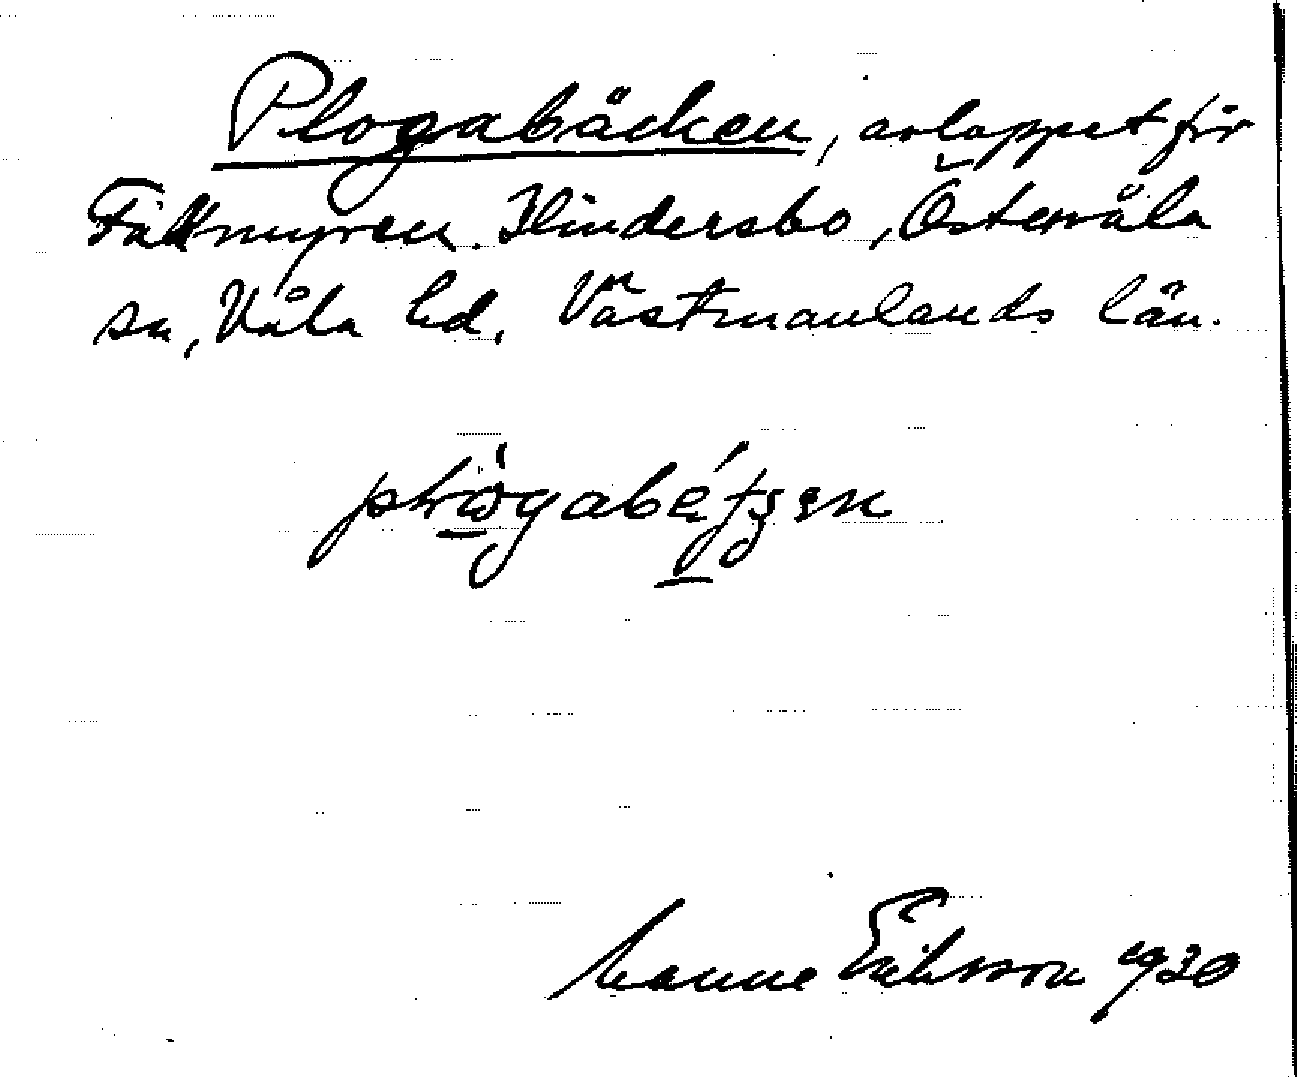 Plogabäcken, avloppet för
Fallmyren. Hindersbo, Östervåla
sn, Våla hd, Västmanlands län.
Manne Eriksson 1930